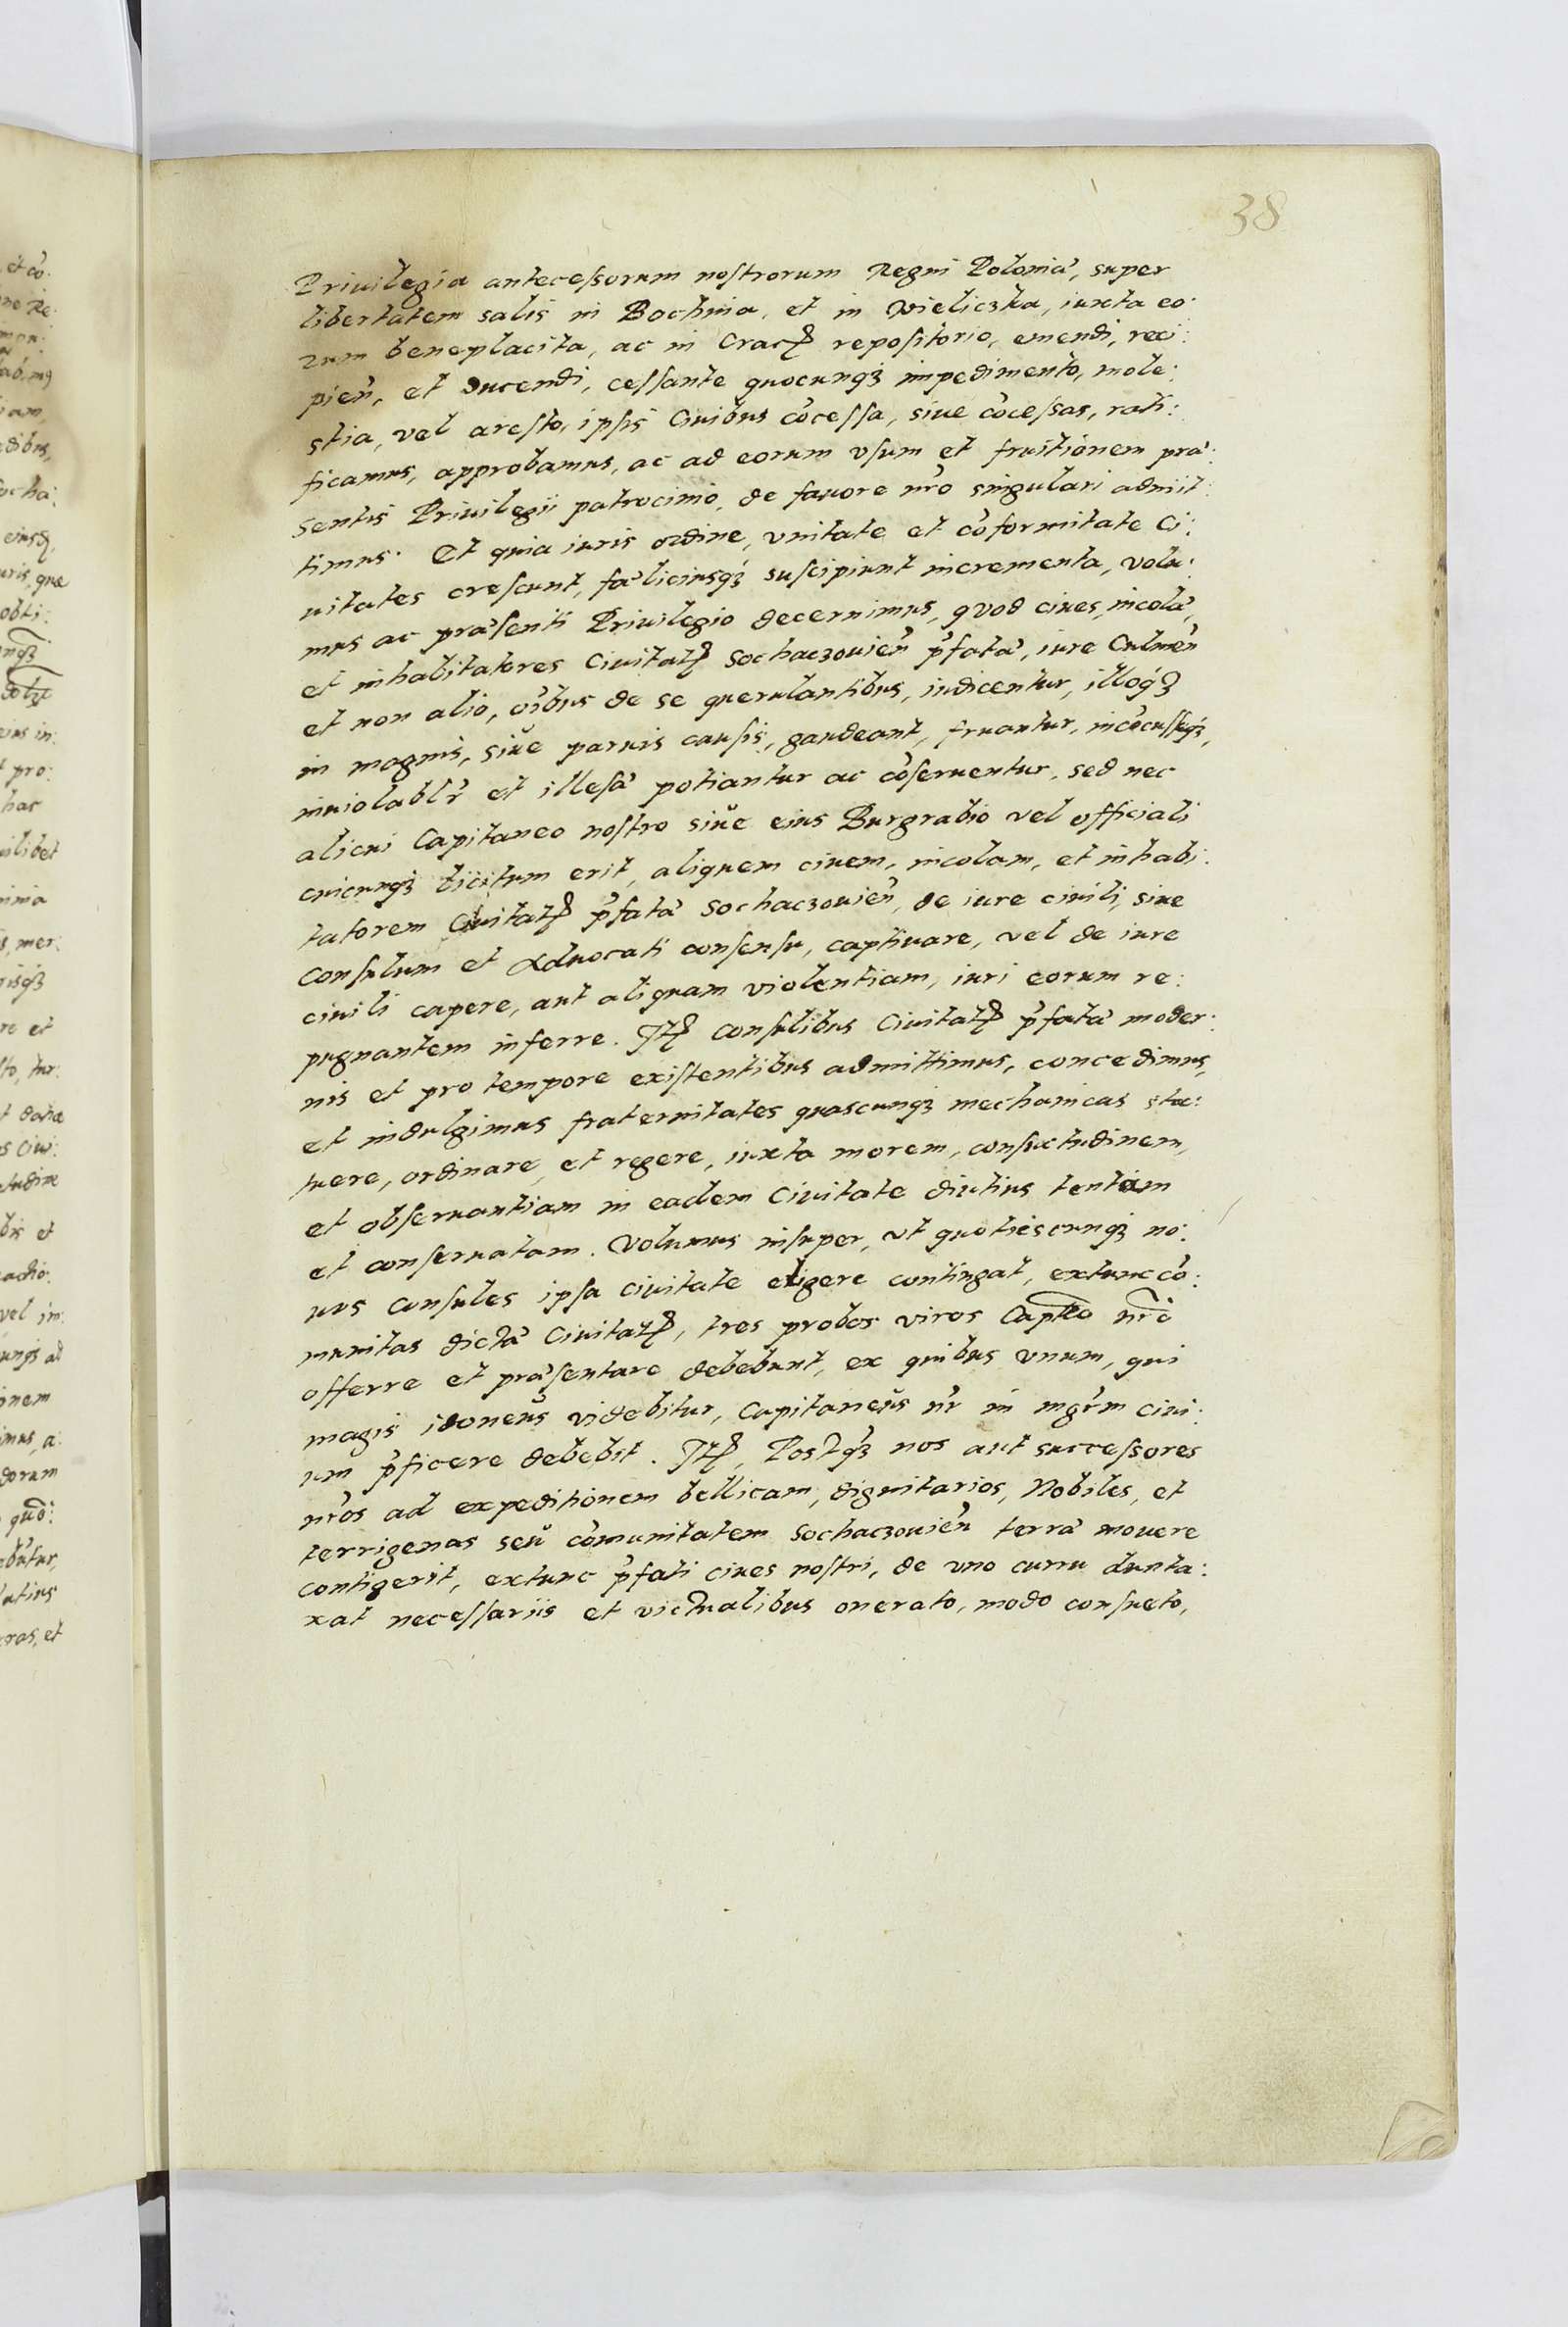 38
Priuilegia antecessorum nostrorum Regni Poloniæ, super
libertatem salis in Bochnia, et in Wieliczka, iuxta eo:
rum beneplacita, ac in Crac repositorio, emendi, reci:
pien, et ducendi, cessante quocunq3 impedimento, mole:
stia, vel aresto, ipsis Ciuibus cõcessa, siue cõcessas, rati:
ficamus, approbamus, ac ad eorum vsum et fruitionem præ:
sentis Priuilegii patrocinio, de fauore nr̃o singulari admit:
timus. Et quia iuris ordine, vnitate et cõformitate Ci:
uitates crescunt, fæliciusq3 suscipiunt incrementa, volu:
mus ac præsenti Priuilegio decernimus, quod ciues, incolæ,
et inhabitatores Ciuitatꝭ Sochaczouien̄ p̄fatæ, iure Culmen̄
et non alio, oĩbus de se querulantibus, iudicentur, illoq3
in magnis, siue paruis causis, gaudeant, fruantur, incõcussq3,
inuiolablr̃ et illesæ potiantur ac cõseruentur, sed nec
alicui Capitaneo nostro siue eius Burgrabio vel officiali
cuicunq3 licitum erit, aliquem ciuem, incolam, et inhabi:
tatorem Ciuitatꝭ p̄fatæ Sochaczouien̄, de iure ciuili, siue
consulum et Aduocati consensu, captiuare, vel de iure
ciuili capere, aut aliquam violentiam, iuri eorum re:
pugnantem inferre. Itꝭ consulibus Ciuitatꝭ p̄fatæ moder:
nis et pro tempore existentibus admittimus, concedimus,
et indulgimus fraternitates quascunq3 mechanicas sta:
tuere, ordinare, et regere, iuxta morem, consuetudinem,
et obseruantiam in eadem Ciuitate diutius tentam
et conseruatam. Volumus insuper, vt quotiescunq3 no:
uos consules ipsa ciuitate eligere contingat, extunc cõ:
munitas dictæ Ciuitatꝭ, tres probos viros Capteo nr̃o
offerre et præsentare debebunt, ex quibus vnum, qui
magis idoneus videbitur, Capitaneus nr̃ in mgr̃m ciui:
um p̄ficere debebit. Itꝭ, Postq3 nos aut successores
nr̃os ad expeditionem bellicam, dignitarios, Nobiles, et
terrigenas seu cõmunitatem Sochaczouien̄ terræ mouere
contigerit, extunc p̄fati ciues nostri, de vno curru dunta:
xat necessariis et victualibus onerato, modo consueto,